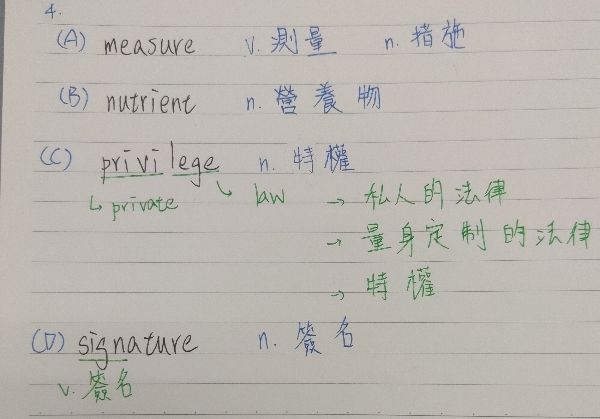 4.
(A) measure v. 測量 n. 措施
(B) nutrient n. 營養物
(C) privilege n. 特權
↳ private ↳ law → 私人的法律
→ 量身定制的法律
→ 特權
(D) signature n. 簽名
v. 簽名